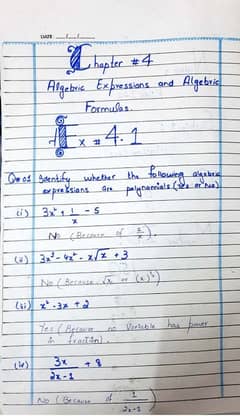 DATE __/__/__
Chapter #4
Algebric Expressions and Algebric
Formulas.
Ex # 4.1
Q#01 Identify whether the following algebric
expressions are polynomials (yes or no)
(i) 3x² + 1/x - 5
No (Because of 1/x)
(ii) 3x³ - 4x² - x√x + 3
No (Because √x or (x)^½)
(iii) x² - 3x + √2
Yes (Because no Variable has power
in fraction).
(iv) 3x/(2x-1) + 8
No (Because of 1/(2x-1))